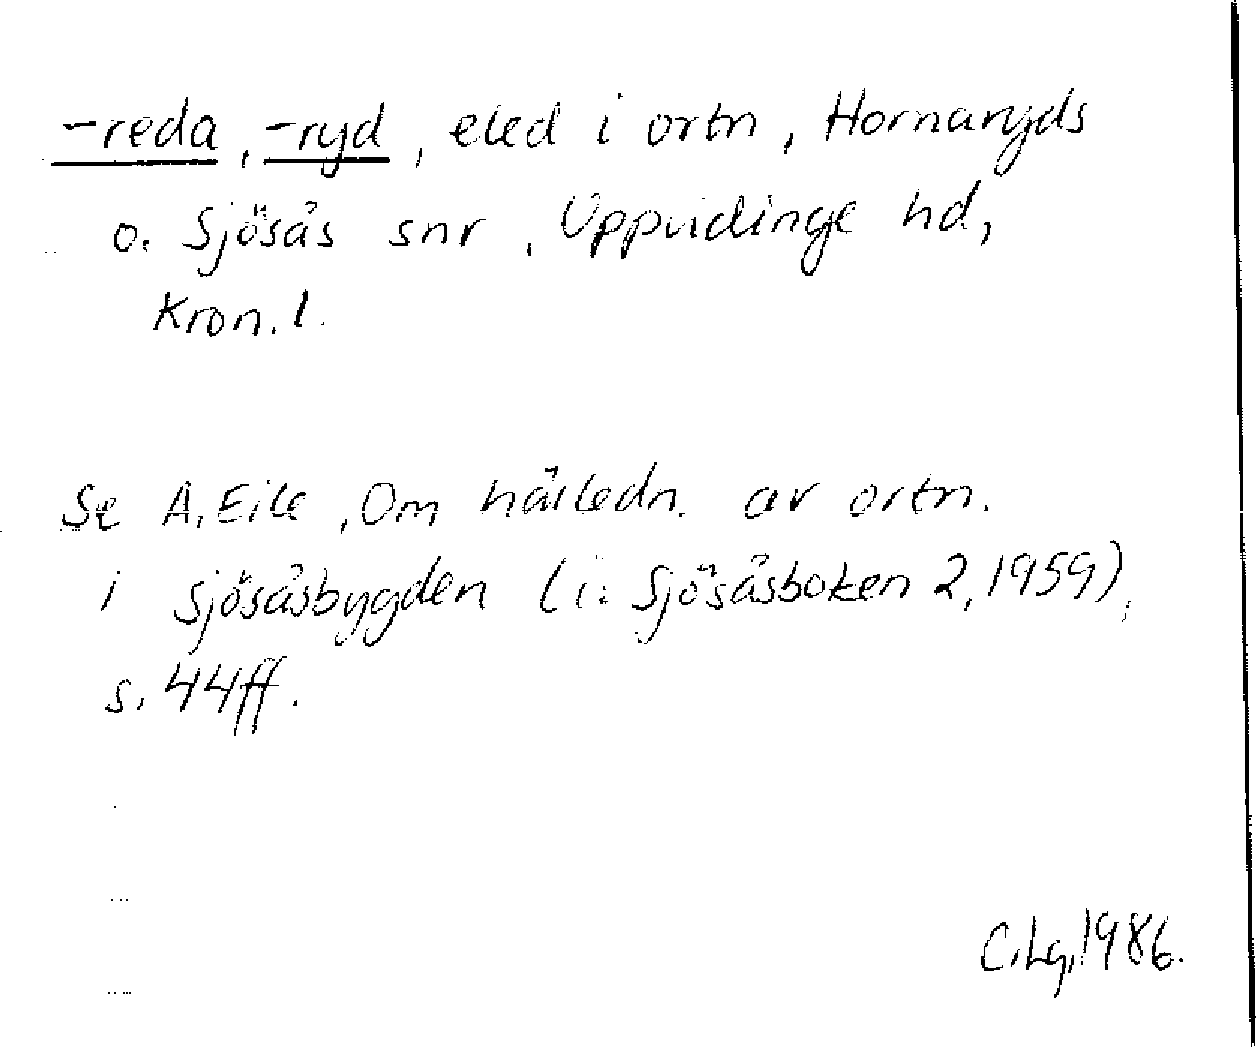 -reda, -ryd, eled i ortn, Hornaryds
o. Sjösås snr, Uppvidinge hd,
Kron. l.
Se A. Eik, Om härledn. av ortn.
i Sjösåsbygden (i: Sjösåsboken 2, 1959),
s. 44ff.
C. Lg, 1986.